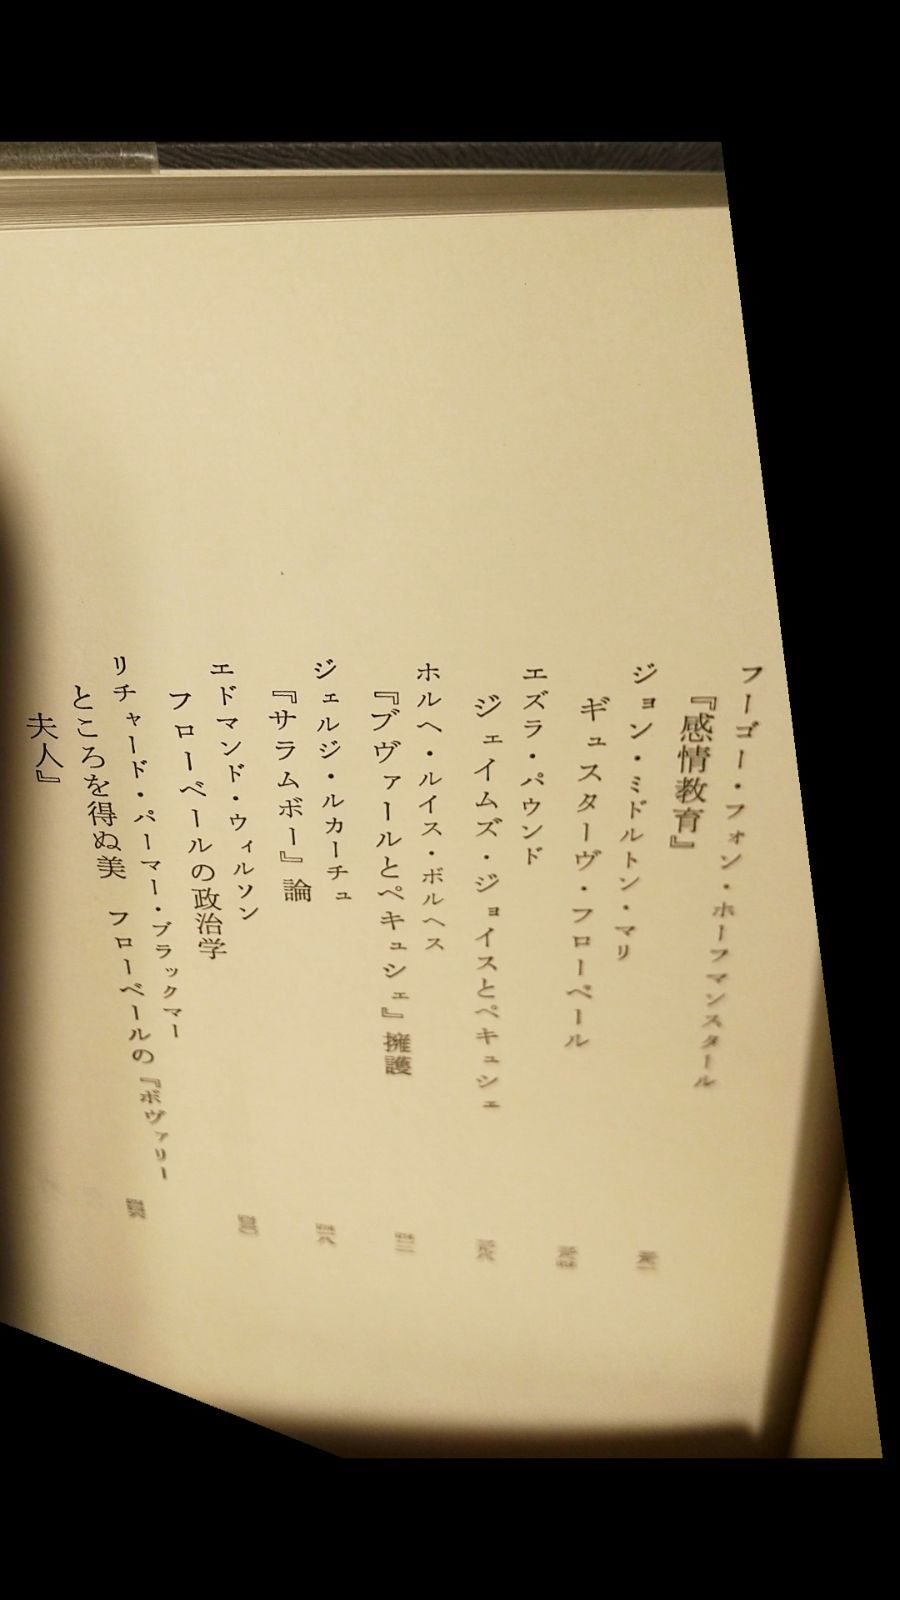 フーゴー・フォン・ホーフマンスタール
『感情教育』
ジョン・ミドルトン・マリ
ギュスターヴ・フローベール
エズラ・パウンド
ジェイムズ・ジョイスとペキュシェ
ホルヘ・ルイス・ボルヘス
『ブヴァールとペキュシェ』擁護
ジェルジ・ルカーチュ
『サラムボー』論
エドマンド・ウィルソン
フローベールの政治学
リチャード・パーマー・ブラックマー
ところを得ぬ美 フローベールの『ボヴァリー
夫人』